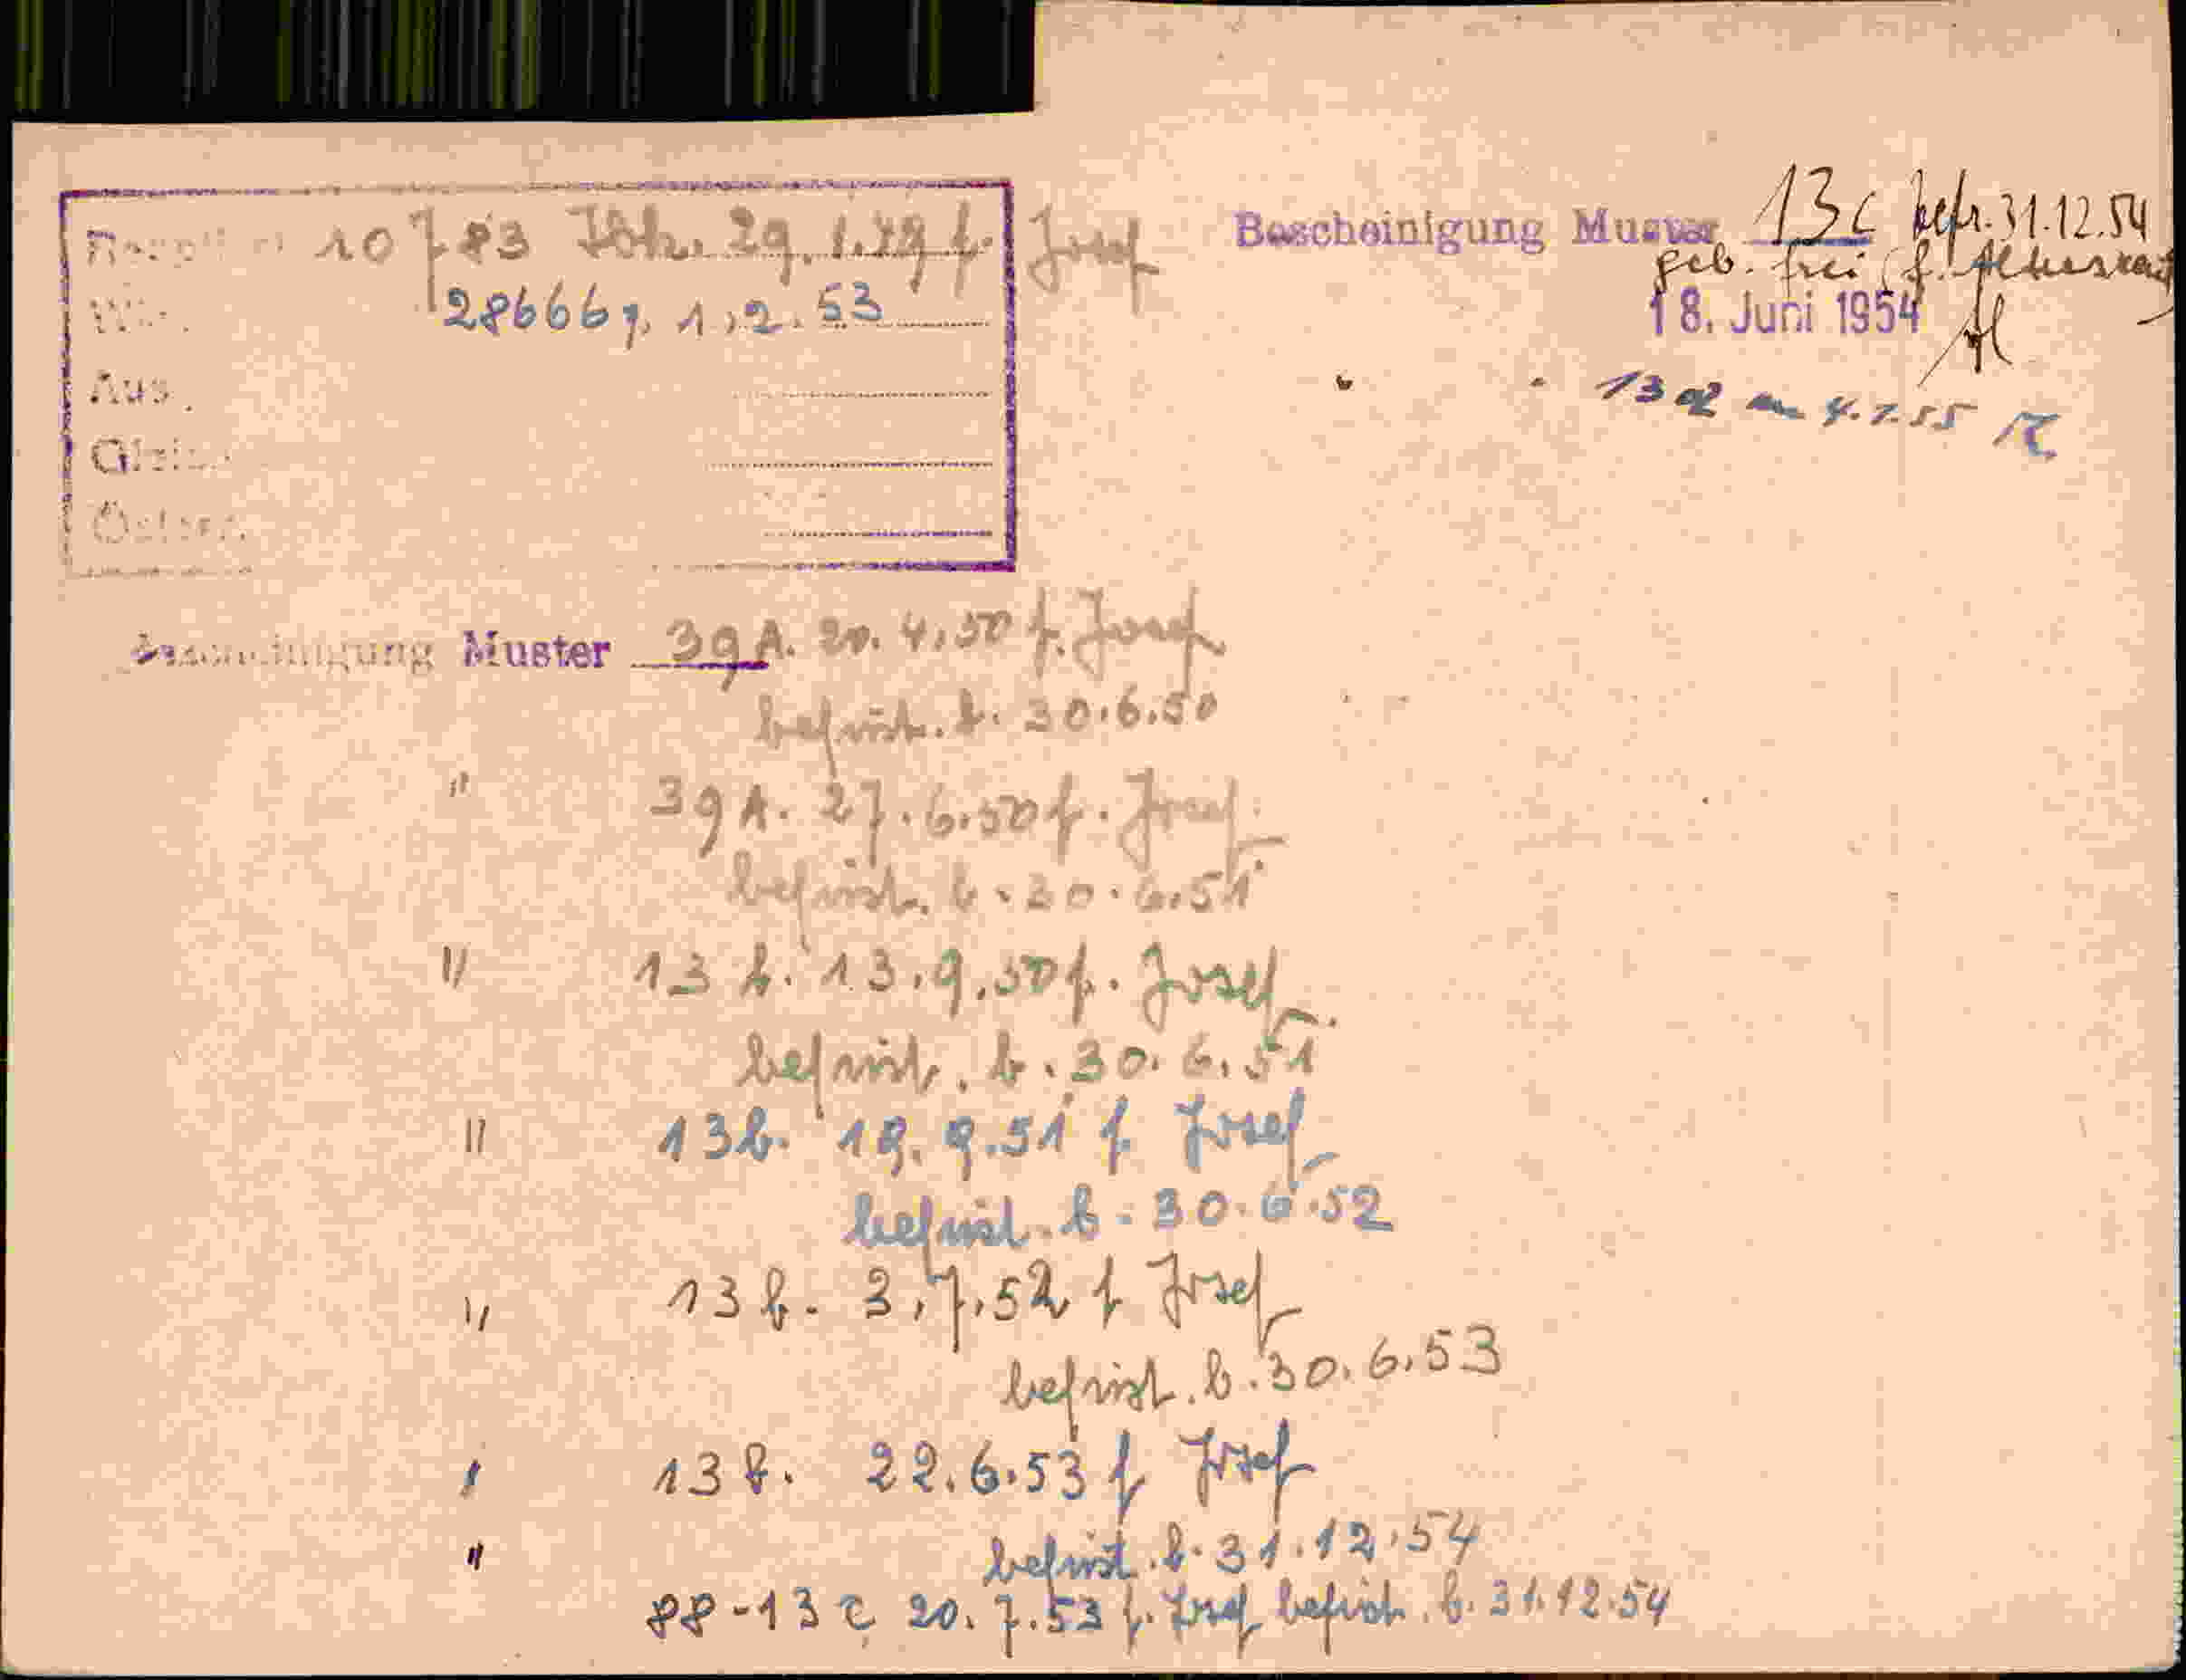 10783 29. 1. 49 f. Josef
286667, 1.2.53
Aus
Bescheinigung Muster 13c befr. 31.12.54
geb. frei f.
18. Juni 1954
" " 13 4.1.55
Bescheinigung Muster 39 A. 20. 4. 50 f. Josef
befrist. b. 30.6.50
" 39 A. 27. 6. 50 f. Josef
befrist. b. 30. 6. 51
" 13 b. 13. 9. 50 f. Josef
befrist. b. 30. 6. 51
" 13 b. 19. 9. 51 f. Josef
befrist. b. 30. 6. 52
" 13 b. 3. 7. 52 f Josef
befrist. b. 30. 6. 53
" 13 b. 22. 6. 53 f Josef
" befrist. b. 31. 12. 54
88-13 c 20. 7. 53 f. Josef befrist. b. 31.12.54